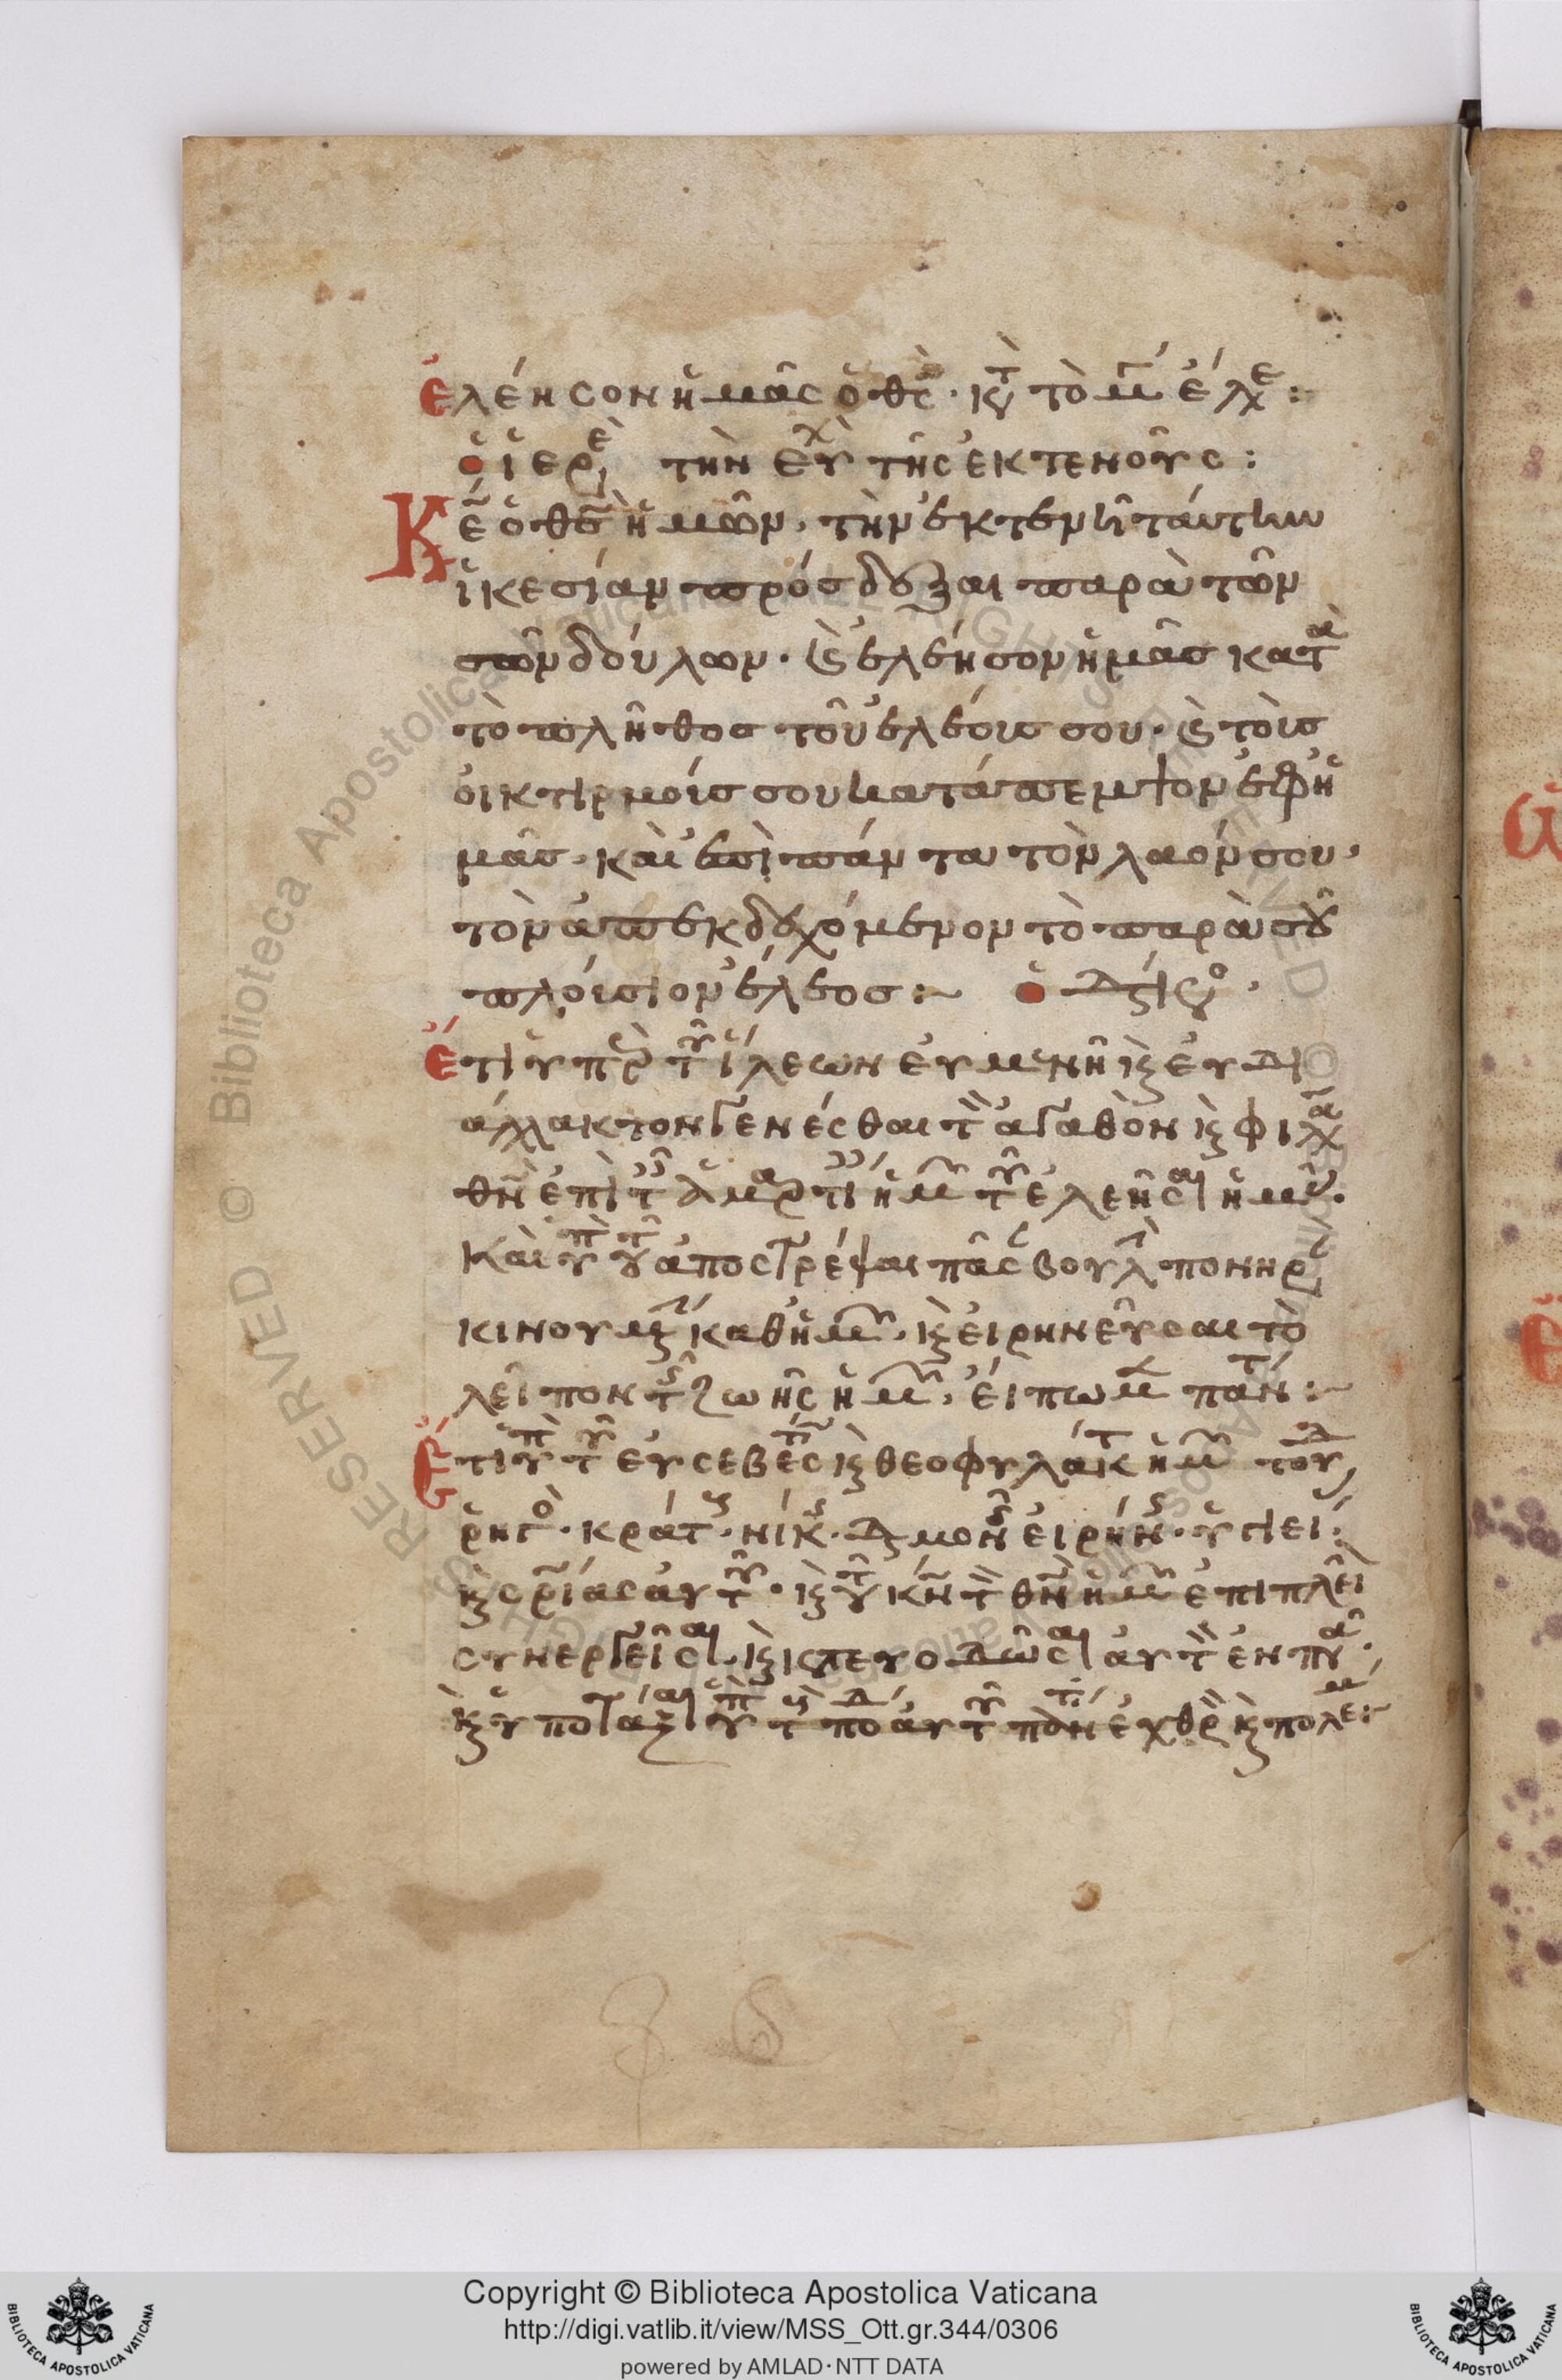 ἐλέησον ἡμᾶς ὁ θς̄· κτ̀ τὸ μ̅ έ̓λε:
ὁ ἱερὲ τὴν εὐχ τῆς ἐκτενοῦς:
Κε̅ ὁ θς̅ ἡμῶν, τὴν ἐκτενῆ ταύτην
ἱκεσίαν πρόσδεξαι παρὰ τῶν
σῶν δούλων· (καὶ) ἐλέησον ἡμᾶς κατὰ
τὸ πλῆθος τοῦ ἐλέους σου· (καὶ) τοὺς
οἰκτιρμούς σου κατάπεμψον ἐφ ἡ
μᾶς· καὶ ἐπὶ πάντα τὸν λαόν σου,
τὸν ἀπεκδεχόμενον τὸ παρὰ σοῦ
πλούσιον ἔλεος:~ ὁ διακο·
ἔτι ὑπὲρ τοῦ ἵλεων εὐμενῆ κ εὐδι
άλλακτον γενέσθαι τ ἀγαθὸν κ φιλα
θν̅ ἐπὶ τ ἁμαρτι ἡμ τοῦ ἐλεῆσαι ἡμ·
Καὶ ὑπ τοῦ ἀποστρέψαι πᾶς βουλ πονηρ
κινουμ καθ ἡμ· κ εἰρηνεῦσαι τὸ
λεῖπον τ ζωῆς ἡμ, εἴπωμ παντ:~
ἔτι ὑπ τ εὐσεβεστ κ θεοφυλάκτ ἡμ τοῦδ
ῥηγὸ· κράτ· νίκ· διαμον εἰρήν· ὑγιεί:
κ σρ̅ίας αὐτοῦ· κ τοῦ κν̅ τ θν̅ ἡμ ἐπιπλεῖ
συνεργεῖσαι· κ κατευοδῶσαι αὐτ ἐν πᾶ·
κ ὑποτάξαι ὑπ τ πόδ αὐτοῦ πάντ ἐχθρ κ πολέμ:~
Copyright © Biblioteca Apostolica Vaticana
http://digi.vatlib.it/view/MSS_Ott.gr.344/0306
powered by AMLAD·NTT DATA
BIBLIOTECA APOSTOLICA VATICANA
BIBLIOTECA APOSTOLICA VATICANA